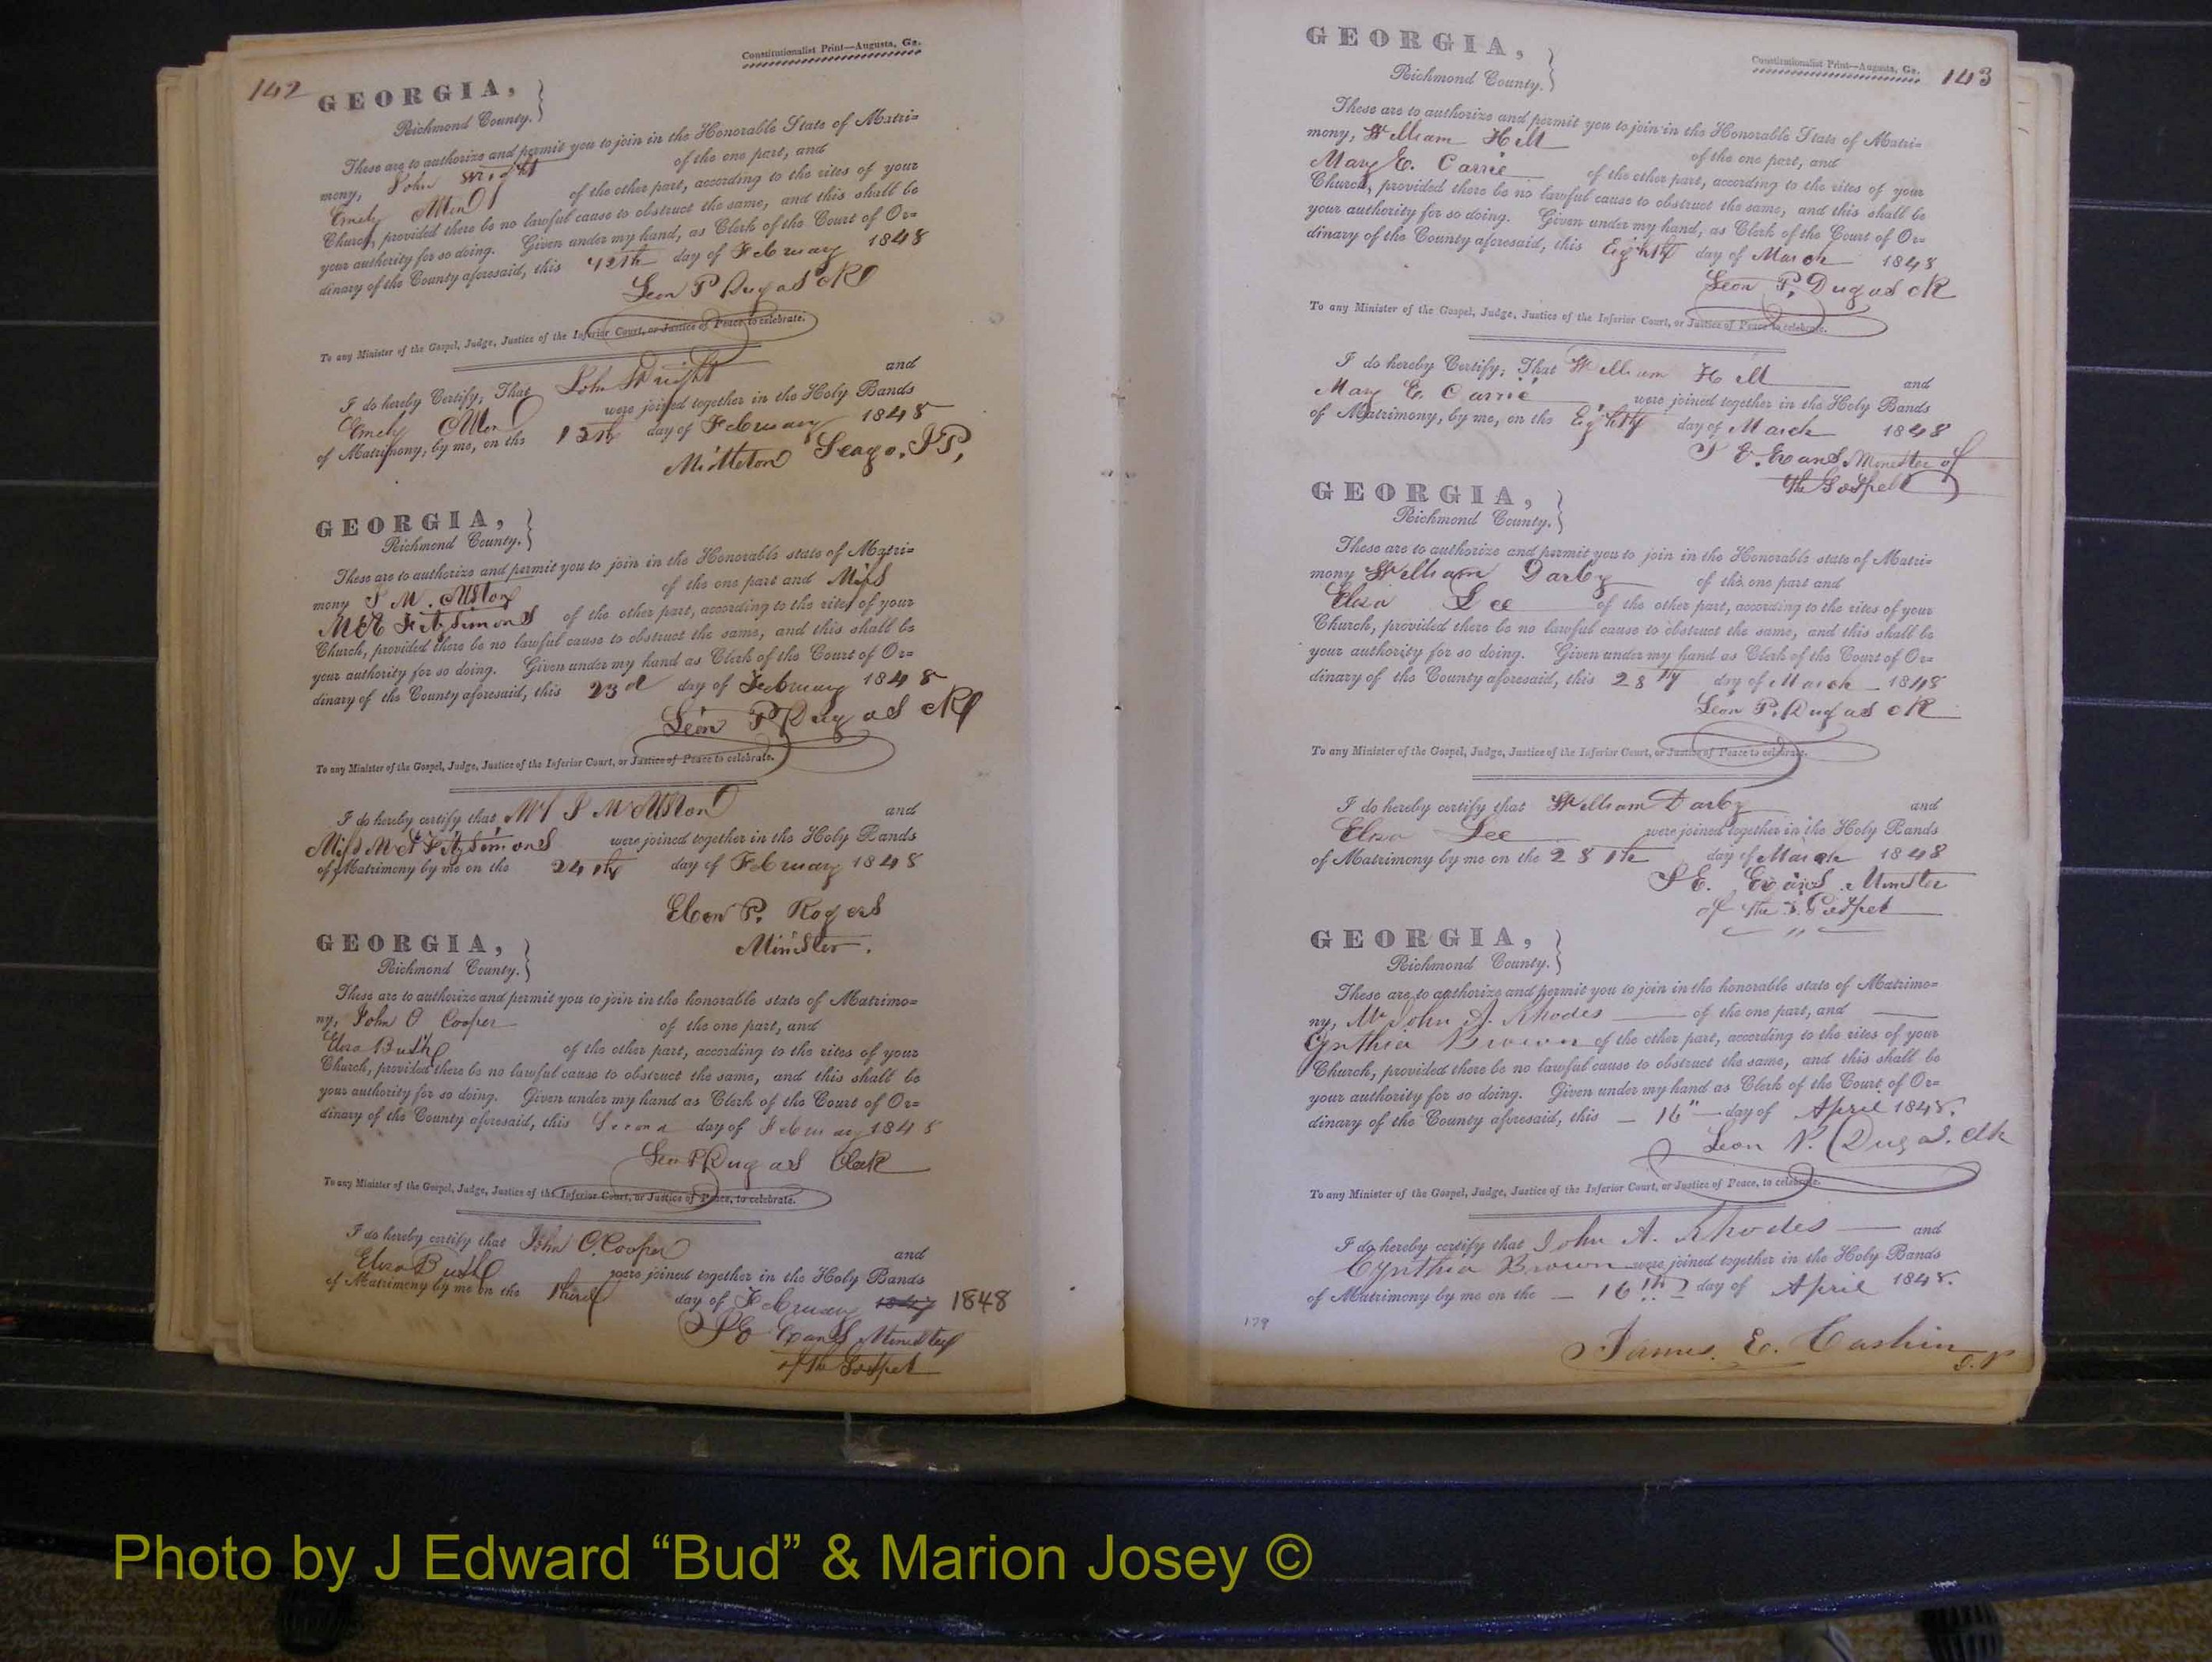 142
Constitutionalist Print—Augusta, Ga.
GEORGIA,
Richmond County.
These are to authorize and permit you to join in the Honorable State of Matri=
mony, John Wright of the one part, and
Emely Allen of the other part, according to the rites of your
Church, provided there be no lawful cause to obstruct the same, and this shall be
your authority for so doing. Given under my hand, as Clerk of the Court of Or=
dinary of the County aforesaid, this 12th day of February 1848
Leon P Dugas Clk
To any Minister of the Gospel, Judge, Justice of the Inferior Court, or Justice of Peace, to celebrate.
I do hereby Certify, That John Wright and
Emely Allen were joined together in the Holy Bands
of Matrimony, by me, on the 13th day of February 1848
Middleton Seago, J.P.
GEORGIA,
Richmond County.
These are to authorize and permit you to join in the Honorable state of Matri=
mony of the one part and Miss
Fitzsimons of the other part, according to the rites of your
Church, provided there be no lawful cause to obstruct the same, and this shall be
your authority for so doing. Given under my hand as Clerk of the Court of Or=
dinary of the County aforesaid, this 23d day of February 1848
Leon P Dugas Clk
To any Minister of the Gospel, Judge, Justice of the Inferior Court, or Justice of Peace to celebrate.
I do hereby certify that and
Miss Fitzsimons were joined together in the Holy Bands
of Matrimony by me on the 24th day of February 1848
Eben P. Rogers
Minister.
GEORGIA,
Richmond County.
These are to authorize and permit you to join in the honorable state of Matrimo=
ny, John O Cooper of the one part, and
Eliza of the other part, according to the rites of your
Church, provided there be no lawful cause to obstruct the same, and this shall be
your authority for so doing. Given under my hand as Clerk of the Court of Or=
dinary of the County aforesaid, this Second day of February 1848
Leon P Dugas Clerk
To any Minister of the Gospel, Judge, Justice of the Inferior Court, or Justice of Peace, to celebrate.
I do hereby certify that John O. Cooper and
Eliza were joined together in the Holy Bands
of Matrimony by me on the Third day of February 1848
Evans Minister
of the Gospel
Constitutionalist Print—Augusta, Ga.
143
GEORGIA,
Richmond County.
These are to authorize and permit you to join in the Honorable State of Matri=
mony, William Hill of the one part, and
Mary E. Carrie of the other part, according to the rites of your
Church, provided there be no lawful cause to obstruct the same, and this shall be
your authority for so doing. Given under my hand, as Clerk of the Court of Or=
dinary of the County aforesaid, this Eighth day of March 1848
Leon P. Dugas Clk
To any Minister of the Gospel, Judge, Justice of the Inferior Court, or Justice of Peace to celebrate.
I do hereby Certify, That William Hill and
Mary E. Carrie were joined together in the Holy Bands
of Matrimony, by me, on the Eighth day of March 1848
E. Evans Minister of
the Gospel
GEORGIA,
Richmond County.
These are to authorize and permit you to join in the Honorable state of Matri=
mony William Darby of the one part and
Eliza Lee of the other part, according to the rites of your
Church, provided there be no lawful cause to obstruct the same, and this shall be
your authority for so doing. Given under my hand as Clerk of the Court of Or=
dinary of the County aforesaid, this 28th day of March 1848
Leon P. Dugas Clk
To any Minister of the Gospel, Judge, Justice of the Inferior Court, or Justice of Peace to celebrate.
I do hereby certify that William Darby and
Eliza Lee were joined together in the Holy Bands
of Matrimony by me on the 28th day of March 1848
E. Evans Minister
of the Gospel
GEORGIA,
Richmond County.
These are to authorize and permit you to join in the honorable state of Matrimo=
ny, Mr John A. Rhodes of the one part, and
Cynthia Brown of the other part, according to the rites of your
Church, provided there be no lawful cause to obstruct the same, and this shall be
your authority for so doing. Given under my hand as Clerk of the Court of Or=
dinary of the County aforesaid, this 16" day of April 1848.
Leon P. Dugas. Clk
To any Minister of the Gospel, Judge, Justice of the Inferior Court, or Justice of Peace, to celebrate.
I do hereby certify that John A. Rhodes and
Cynthia Brown were joined together in the Holy Bands
of Matrimony by me on the 16th day of April 1848.
James. E. Cashin J.P
179
Photo by J Edward “Bud” & Marion Josey ©